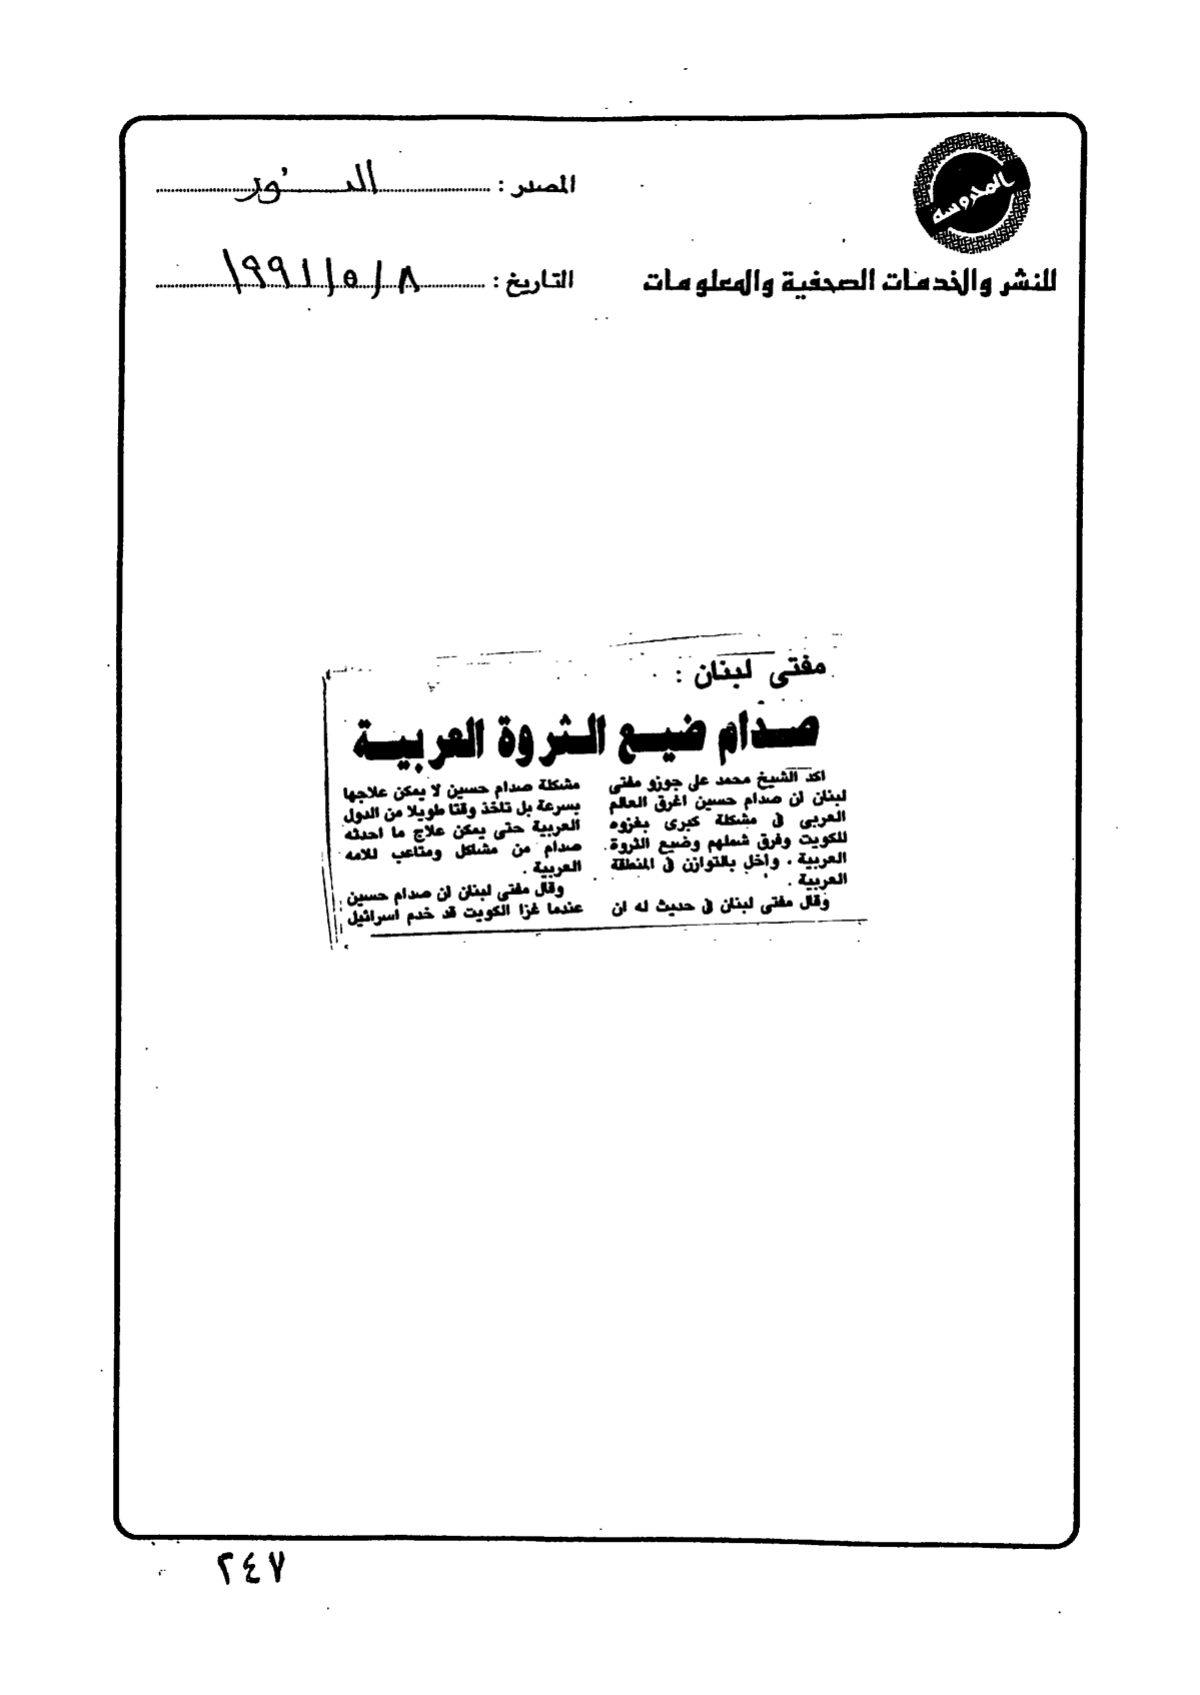 المحروسة
للنشر والخدمات الصحفية والمعلومات
المصدر : النور
التاريخ : ٨ / ٥ / ١٩٩١
مفتى لبنان :
صدام ضيع الثروة العربية
اكد الشيخ محمد على جوزو مفتى
لبنان ان صدام حسين اغرق العالم
العربى فى مشكلة كبرى بغزوه
للكويت وفرق شملهم وضيع الثروة
العربية . واخل بالتوازن فى المنطقة
العربية .
وقال مفتى لبنان فى حديث له ان
مشكلة صدام حسين لا يمكن علاجها
بسرعة بل تاخذ وقتا طويلا من الدول
العربية حتى يمكن علاج ما احدثه
صدام من مشاكل ومتاعب للامه
العربية .
وقال مفتى لبنان ان صدام حسين
عندما غزا الكويت قد خدم اسرائيل
٢٤٧